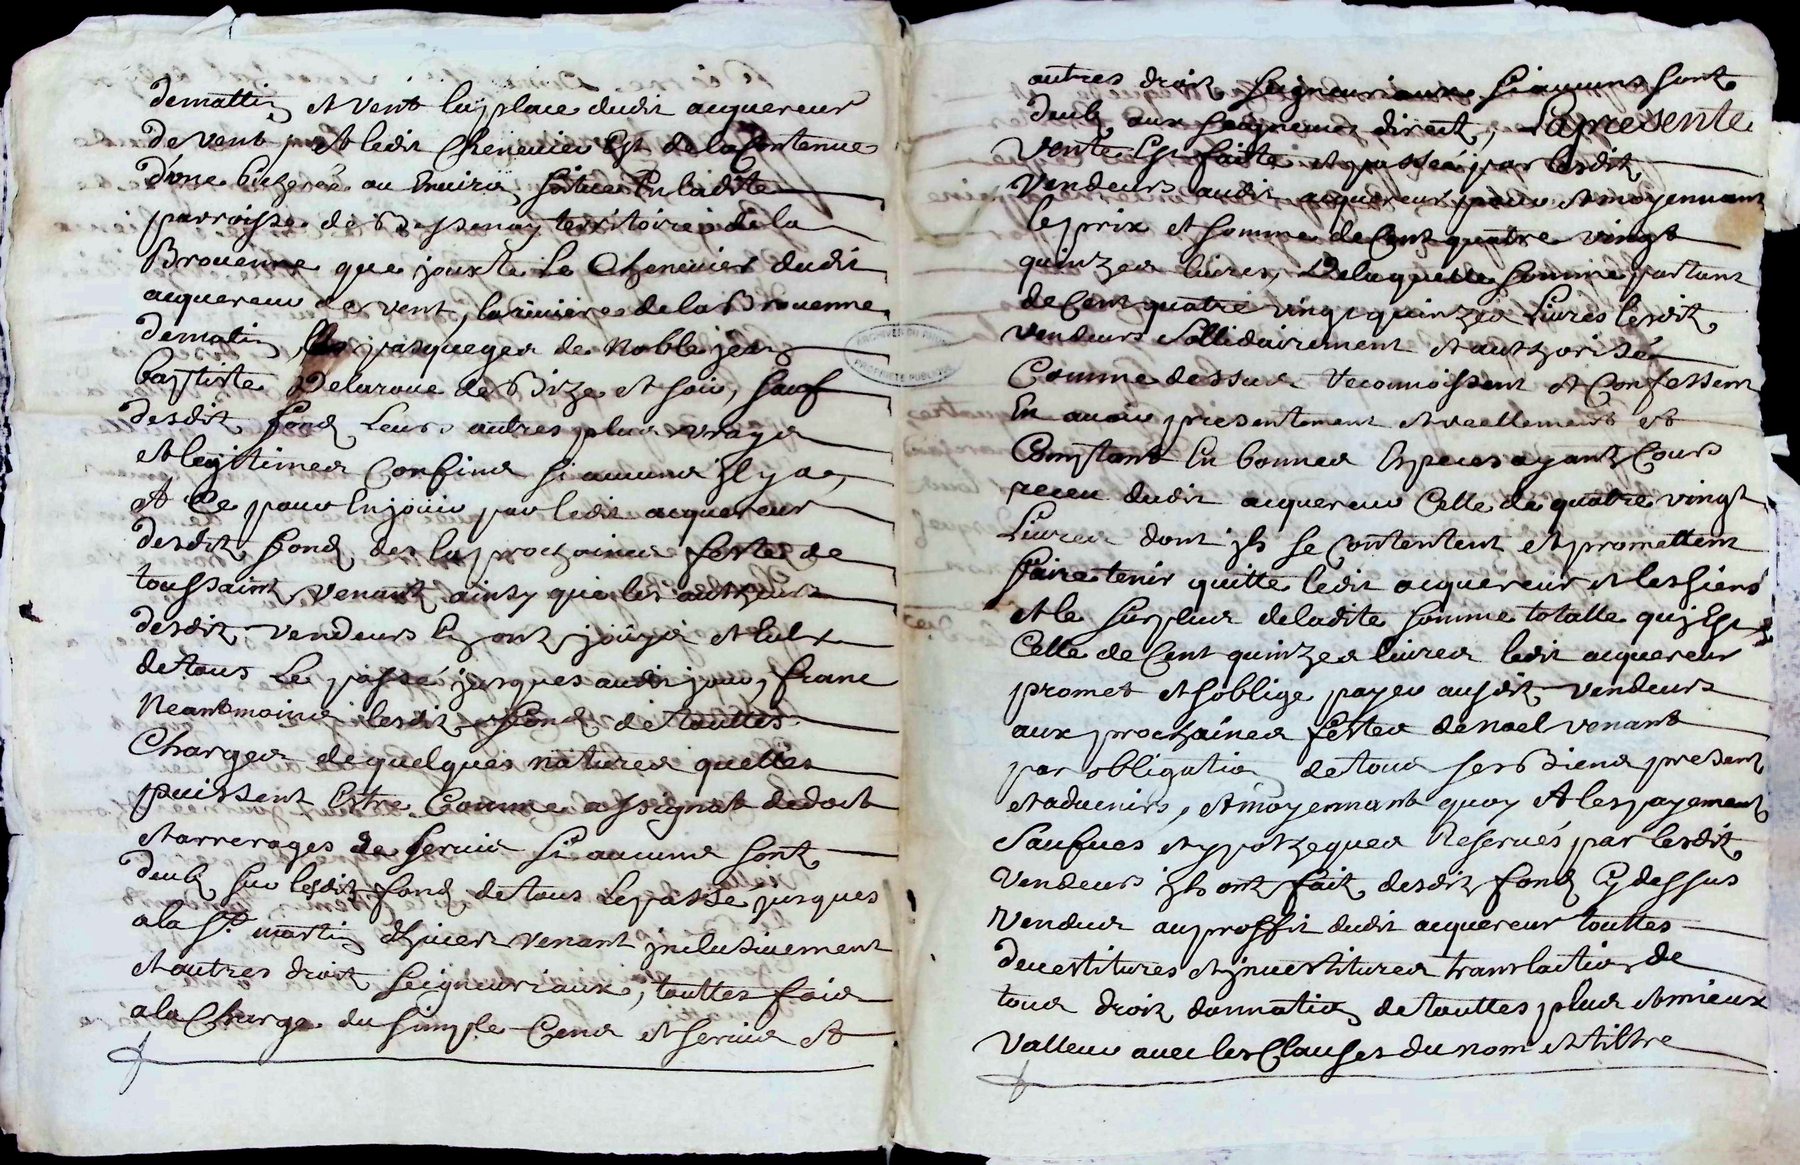 dematin et vent la place dudit acquereur
de vent, et ledit Chenevier Est de la Contenue
d'une bicheréé ou Environ scituée En ladite
parroisse de Bessenay territoire de la
Brouenne que jouxte le Chenevier dudit
acquereur de vent, la riviere de la Brouenne
dematin, les pasqueges de Noble jean
baptiste Delaroue de Bize et soir, sauf
desdits fonds leurs autres plus vrayes
et legitimes Confins si aucuns il y a,
Et Ce pour En jouir par ledit acquereur
desdits fonds des la prochaines feste de
toussaint venant ainsy que les autheurs
desdits vendeurs En ont jouys et Eulx
de tous Le passé jusques audit jour, franc
Neantmoins lesdits fonds de touttes
Charges de quelques natures quelles
puissent Estre Comme assignat dedoct
et arrerages de servis si aucuns sont
deubs sur lesdits fonds de tous Le passé jusques
a la St. martin d'hiver venant inclusivement
et autres droits seigneuriaux, touttes fois
a la Charge du simple Cens et servis et
autres droits seigneuriaux si aucuns sont
deubs aux seigneurs directs, La presente
Vente Est faite et passée par lesdits
Vendeurs audit acquereur pour et moyennant
le prix et somme de Cent quatre vingt
quinzes livres, De laquelle somme partant
de Cent quatre vingt quinzes Livres lesdits
vendeurs sollidairement et authorisée
Comme dessus reconnoissent et Confessent
En avoir presentement et reellement et
Comptant En bonnes Especes ayant Cours
receu dudit acquereur Celle de quatre vingt
Livres dont ils se Contentent et promettent
faire tenir quitte ledit acquereur et les siens
et le surplus de ladite somme totalle qui Est
Celle de Cent quinzes livres ledit acquereur
promet et soblige payer ausdits vendeurs
aux prochaines festes de noel venant
par obligation de tous ses Biens present
et advenirs, et moyennant quoy et les payement
Saufves et ypotheques Reservés par lesdits
Vendeurs ils ont fait desdits fonds Cy dessus
Vendus au proffit dudit acquereur touttes
devestitures et investitures translation de
tous droits donnation de touttes plus et mieux
Valleur avec les Clauses du nom et tiltre
PROPRIETE PUBLIQUE